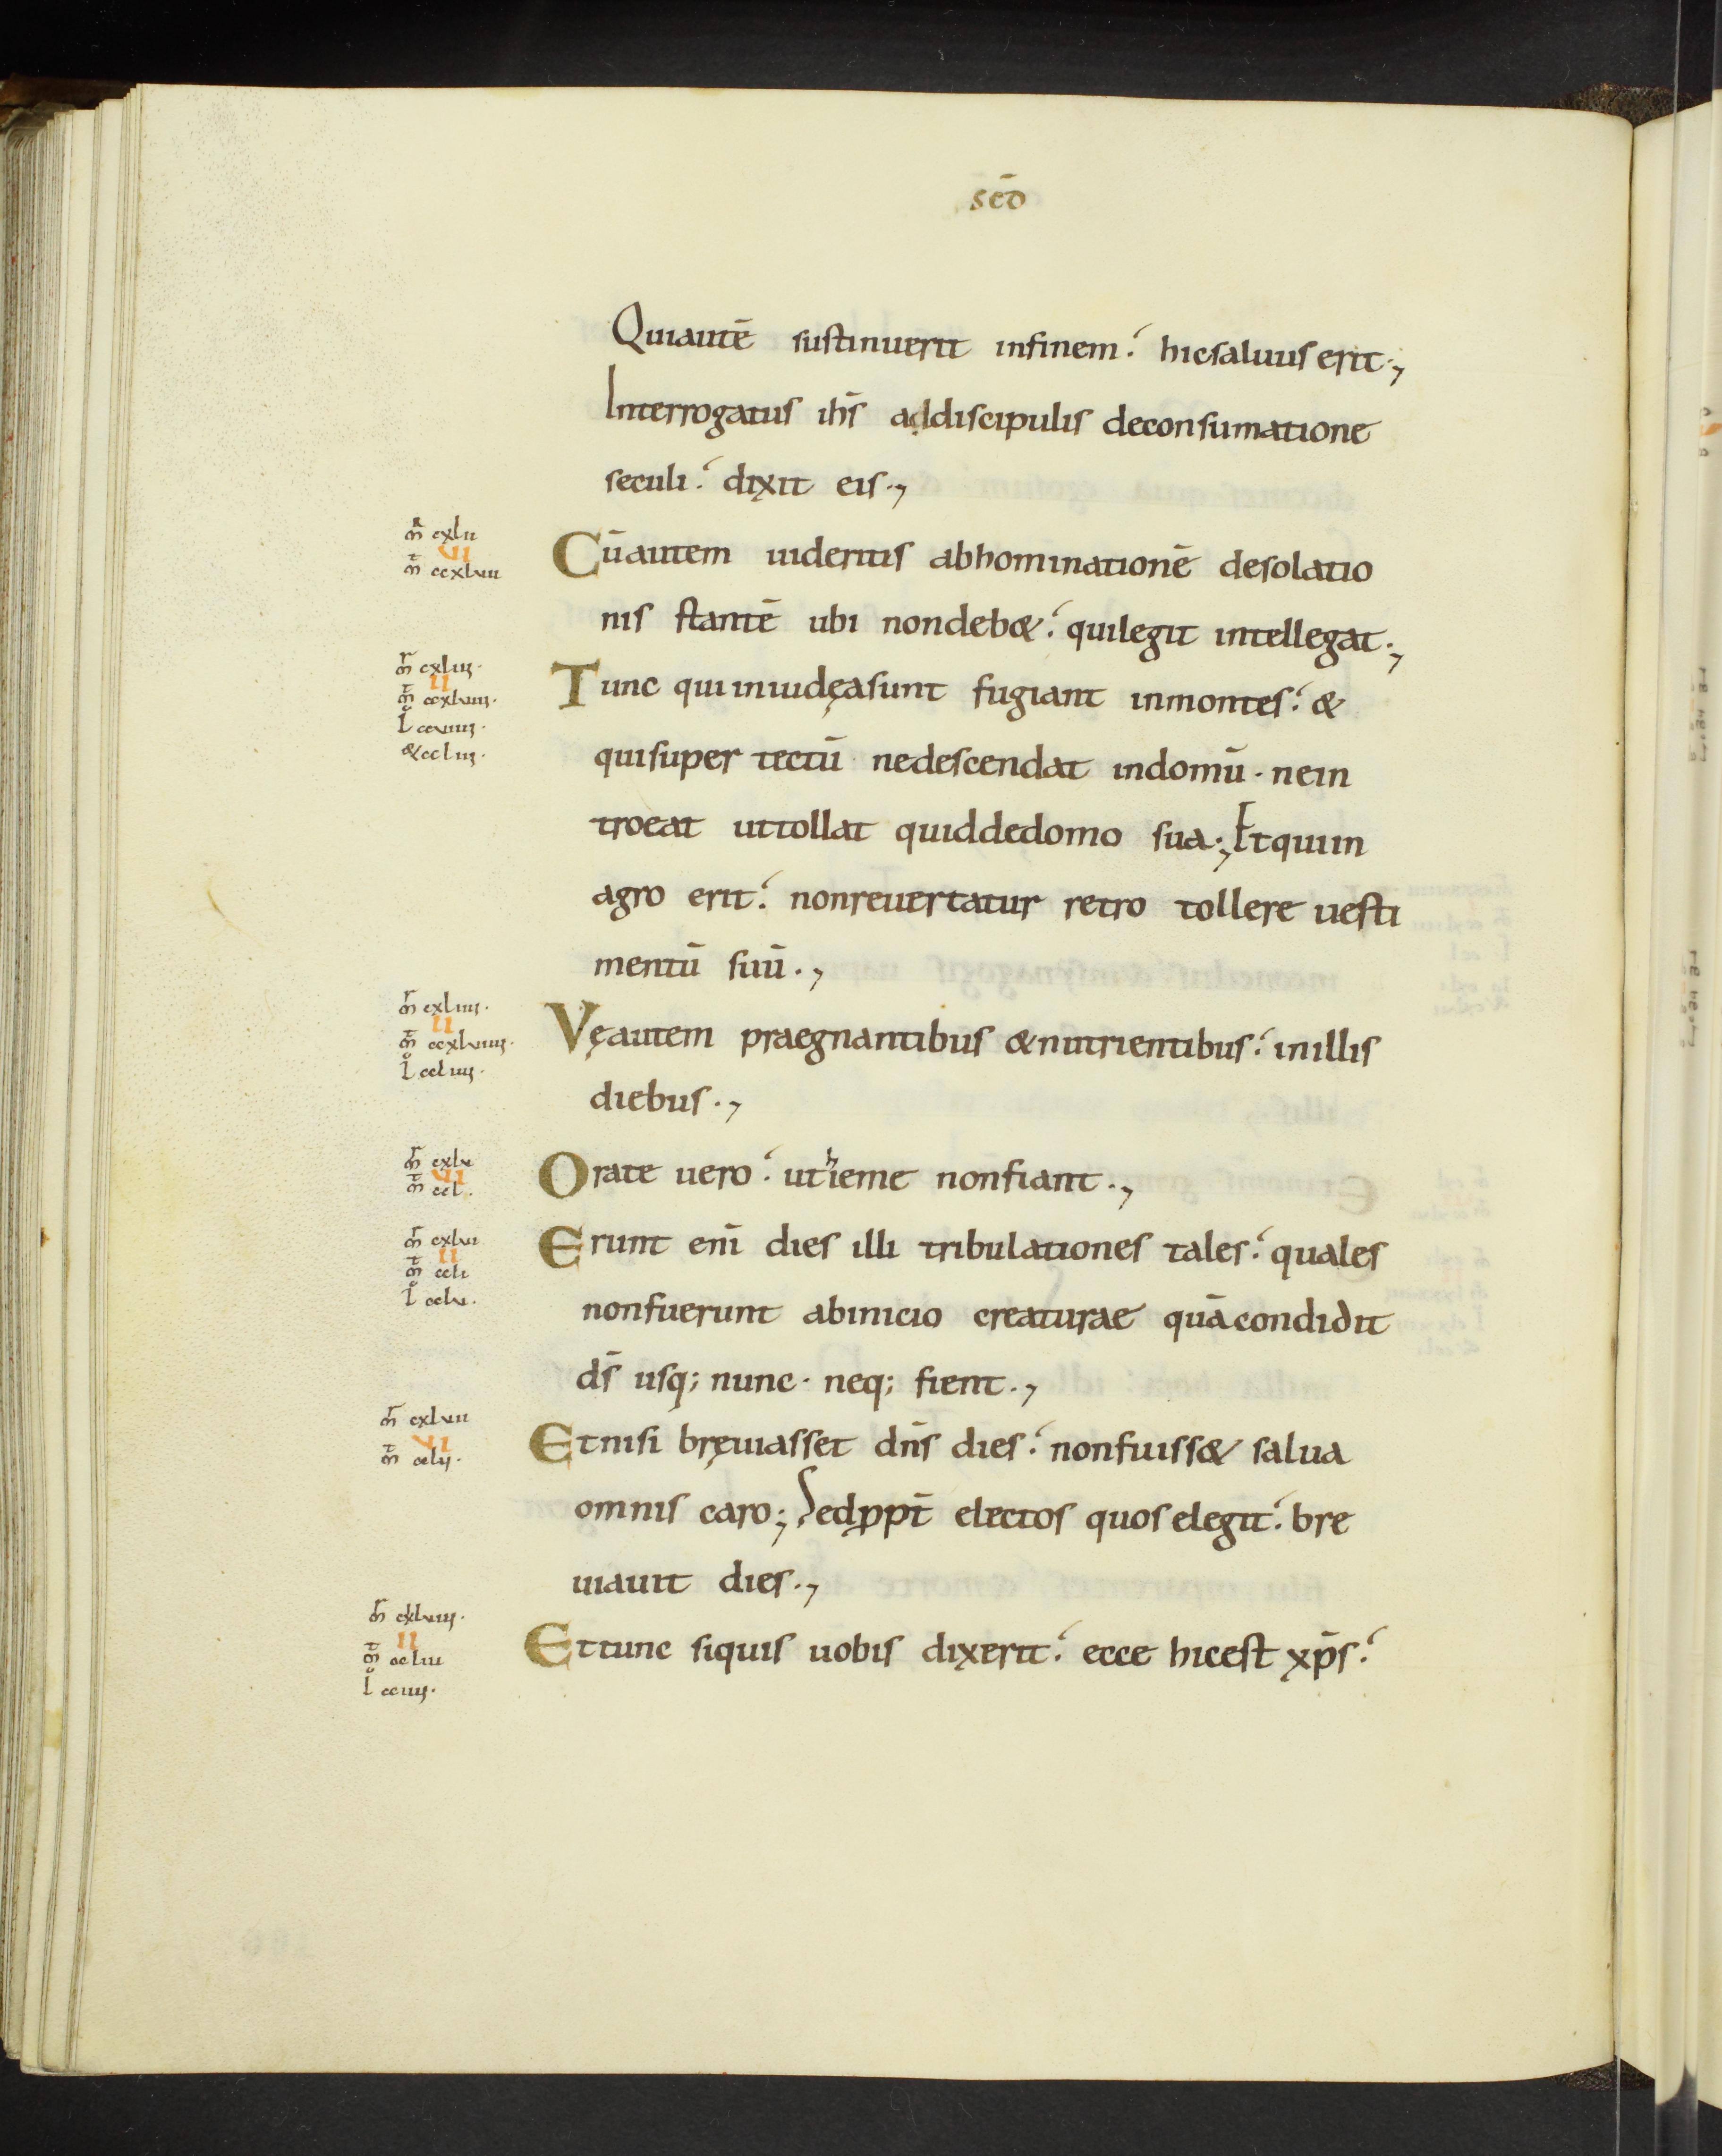 secd̄
Quiautē sustinuerit infinem. hicsaluus erit.,
Interrogatus ih̄s addiscipulis deconsumatione
seculi. dixit eis.,
mr cxlii
vi
mt ccxlvii
Cūautem uideritis abhominationē desolatio
nis stantē ubi nondeb&. quilegit intellegat.,
mr cxliii.
ii
mt ccxlviii.
&ccliii.
Tunc qui iniudęasunt fugiant inmontes. &
quisuper tectū nedescendat indomū. nein
troeat uttollat quiddedomo sua., Etquiin
agro erit. nonreuertatur retro tollere uesti
mentū suū.,
mr cxliiii.
ii
mt ccxlviiii.
l ccliiii.
Vęautem praegnantibus &nutrientibus. inillis
diebus.,
mr cxlv
vi
mt ccl.
Orate uero. ut hieme nonfiant.,
mr cxlvi
ii
mt ccli
l cclv.
Erunt enī dies illi tribulationes tales. quales
nonfuerunt abinicio creaturae quācondidit
d̄s usq; nunc. neq; fient.,
mr cxlvii
vi
mt cclii.
Etnisi bręuiasset dn̄s dies. nonfuiss& salua
omnis caro., Sedppt̄ electos quos elegit. bre
uiauit dies.,
mr cxlviii.
ii
mt ccliii
l cciiii.
Ettunc siquis uobis dixerit. ecce hicest xp̄s.